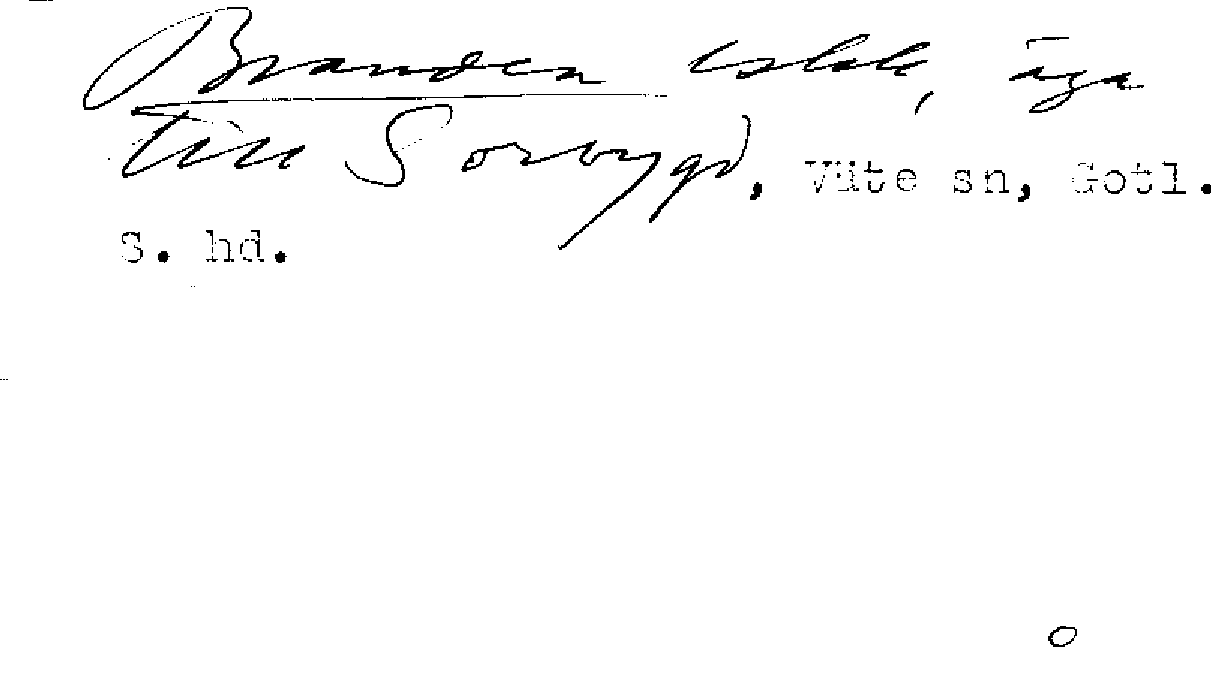 Branden äga
till Sorbygd, Väte sn, Gotl.
S. hd.
o